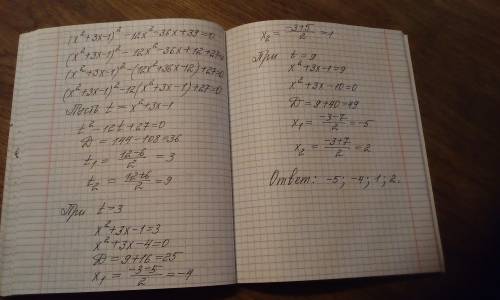 (x²+3x-1)²-12x²-36x+39=0
(x²+3x-1)²-12x²-36x+12+27=0
(x²+3x-1)²-(12x²+36x-12)+27=0
(x²+3x-1)²-12(x²+3x-1)+27=0
Пусть t=x²+3x-1
t²-12t+27=0
D=144-108=36
t₁=(12-6)/2=3
t₂=(12+6)/2=9
При t=3
x²+3x-1=3
x²+3x-4=0
D=9+16=25
x₁=(-3-5)/2=-4
x₂=(-3+5)/2=1
При t=9
x²+3x-1=9
x²+3x-10=0
D=9+40=49
x₁=(-3-7)/2=-5
x₂=(-3+7)/2=2
Ответ: -5; -4; 1; 2.